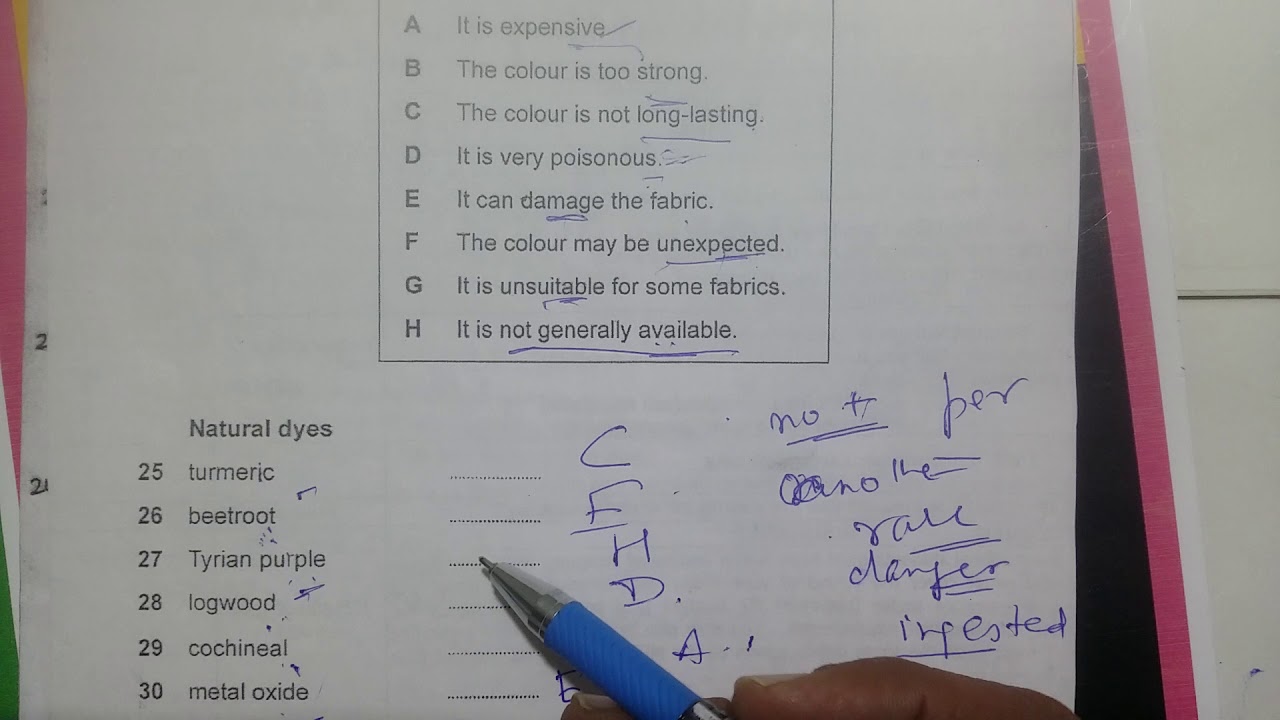 A It is expensive
B The colour is too strong.
C The colour is not long-lasting.
D It is very poisonous.
E It can damage the fabric.
F The colour may be unexpected.
G It is unsuitable for some fabrics.
H It is not generally available.
2
2
Natural dyes
25 turmeric .................. C
26 beetroot .................. F
27 Tyrian purple .................. H
28 logwood .................. D.
29 cochineal .................. A
30 metal oxide .................. E
not per
another
rare
danger
ingested